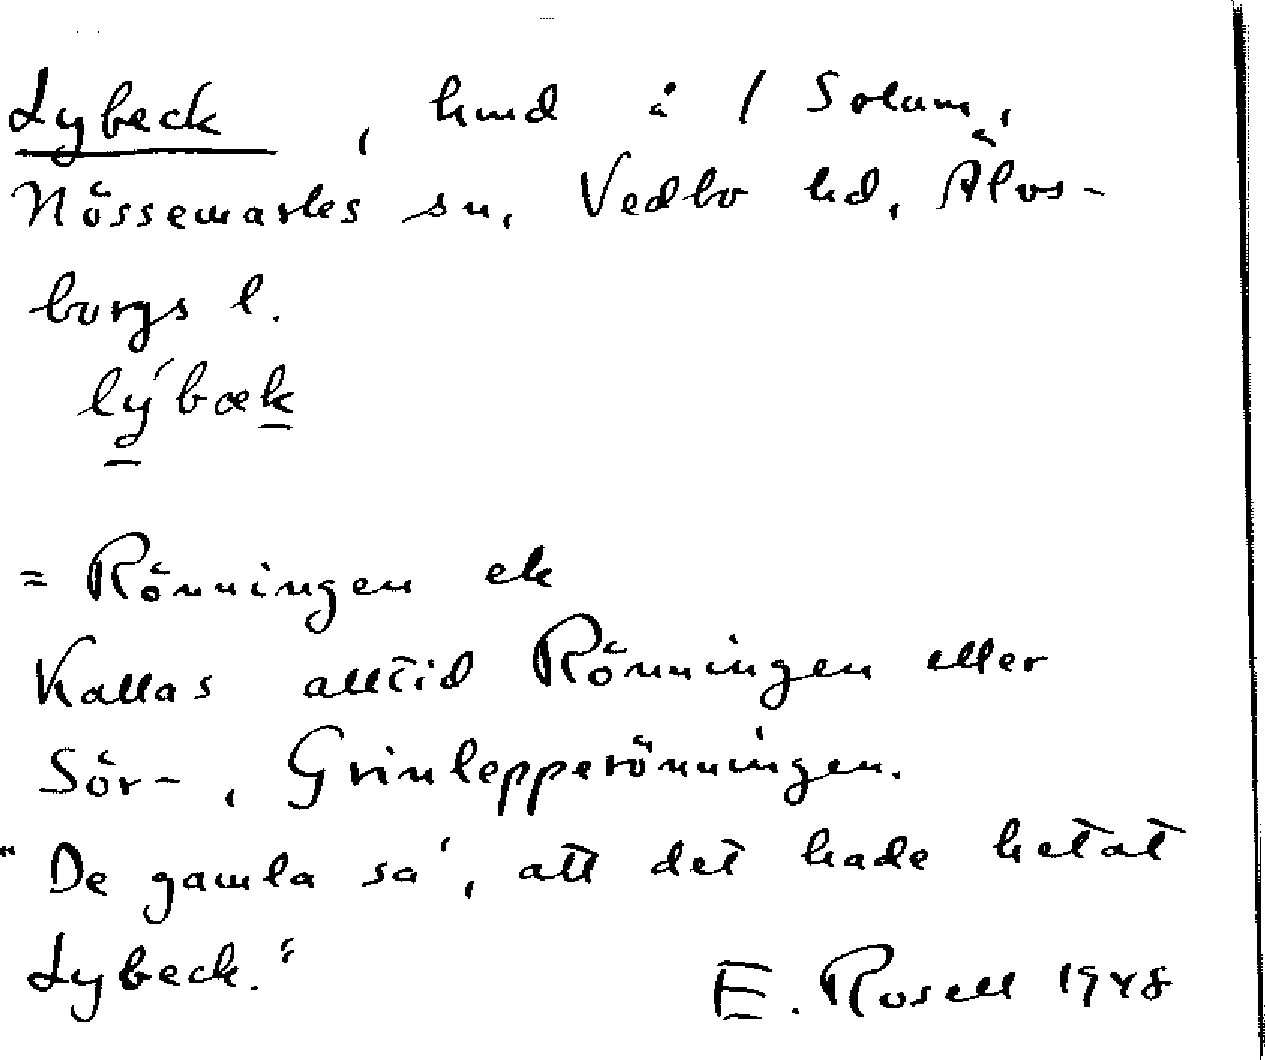 Lybeck, hmd å 1 Solum,
Nössemarks sn, Vedbo hd, Älvs-
borgs l.
lýbæk
= Rönningen ek
Kallas alltid Rönningen eller
Sör-, Grinlepperönningen.
"De gamla sa', att det hade hetat
Lybeck."
E. Rosell 1948